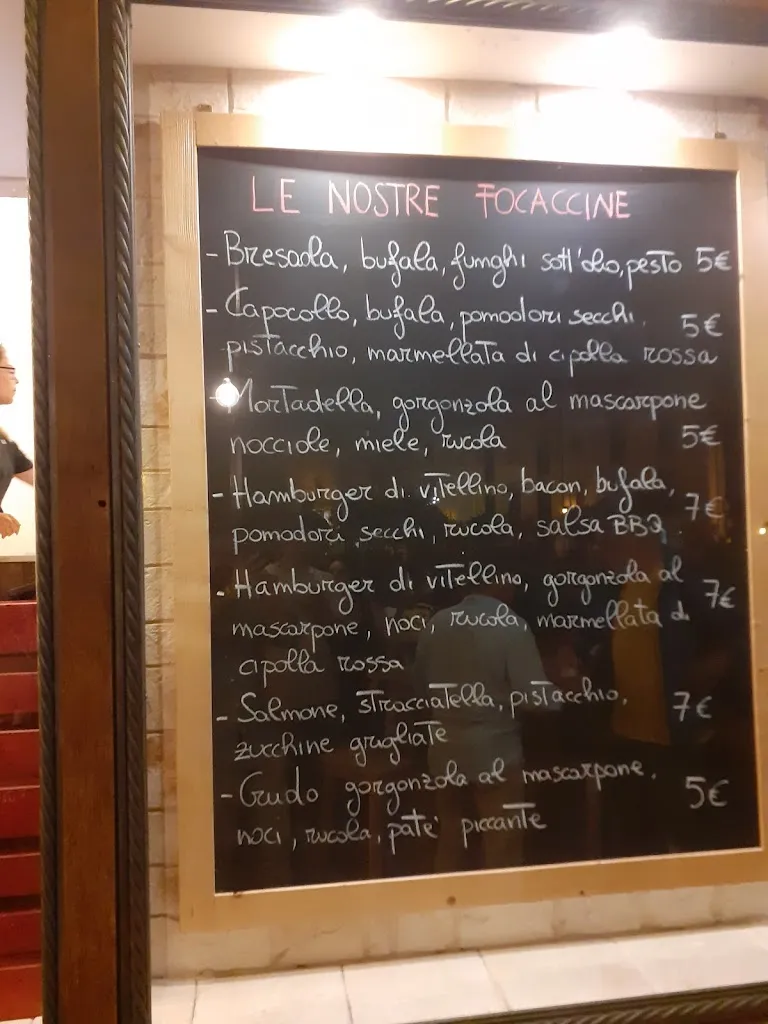 LE NOSTRE FOCACCINE
- Bresaola, bufala, funghi sott'olio, pesto 5€
- Capocollo, bufala, pomodori secchi, 5€
pistacchio, marmellata di cipolla rossa
- Mortadella, gorgonzola al mascarpone
nocciole, miele, rucola 5€
- Hamburger di vitellino, bacon, bufala, 7€
pomodori secchi, rucola, salsa BBQ
- Hamburger di vitellino, gorgonzola al 7€
mascarpone, noci, rucola, marmellata di
cipolla rossa
- Salmone, stracciatella, pistacchio, 7€
zucchine grigliate
- Crudo gorgonzola al mascarpone, 5€
noci, rucola, patè piccante